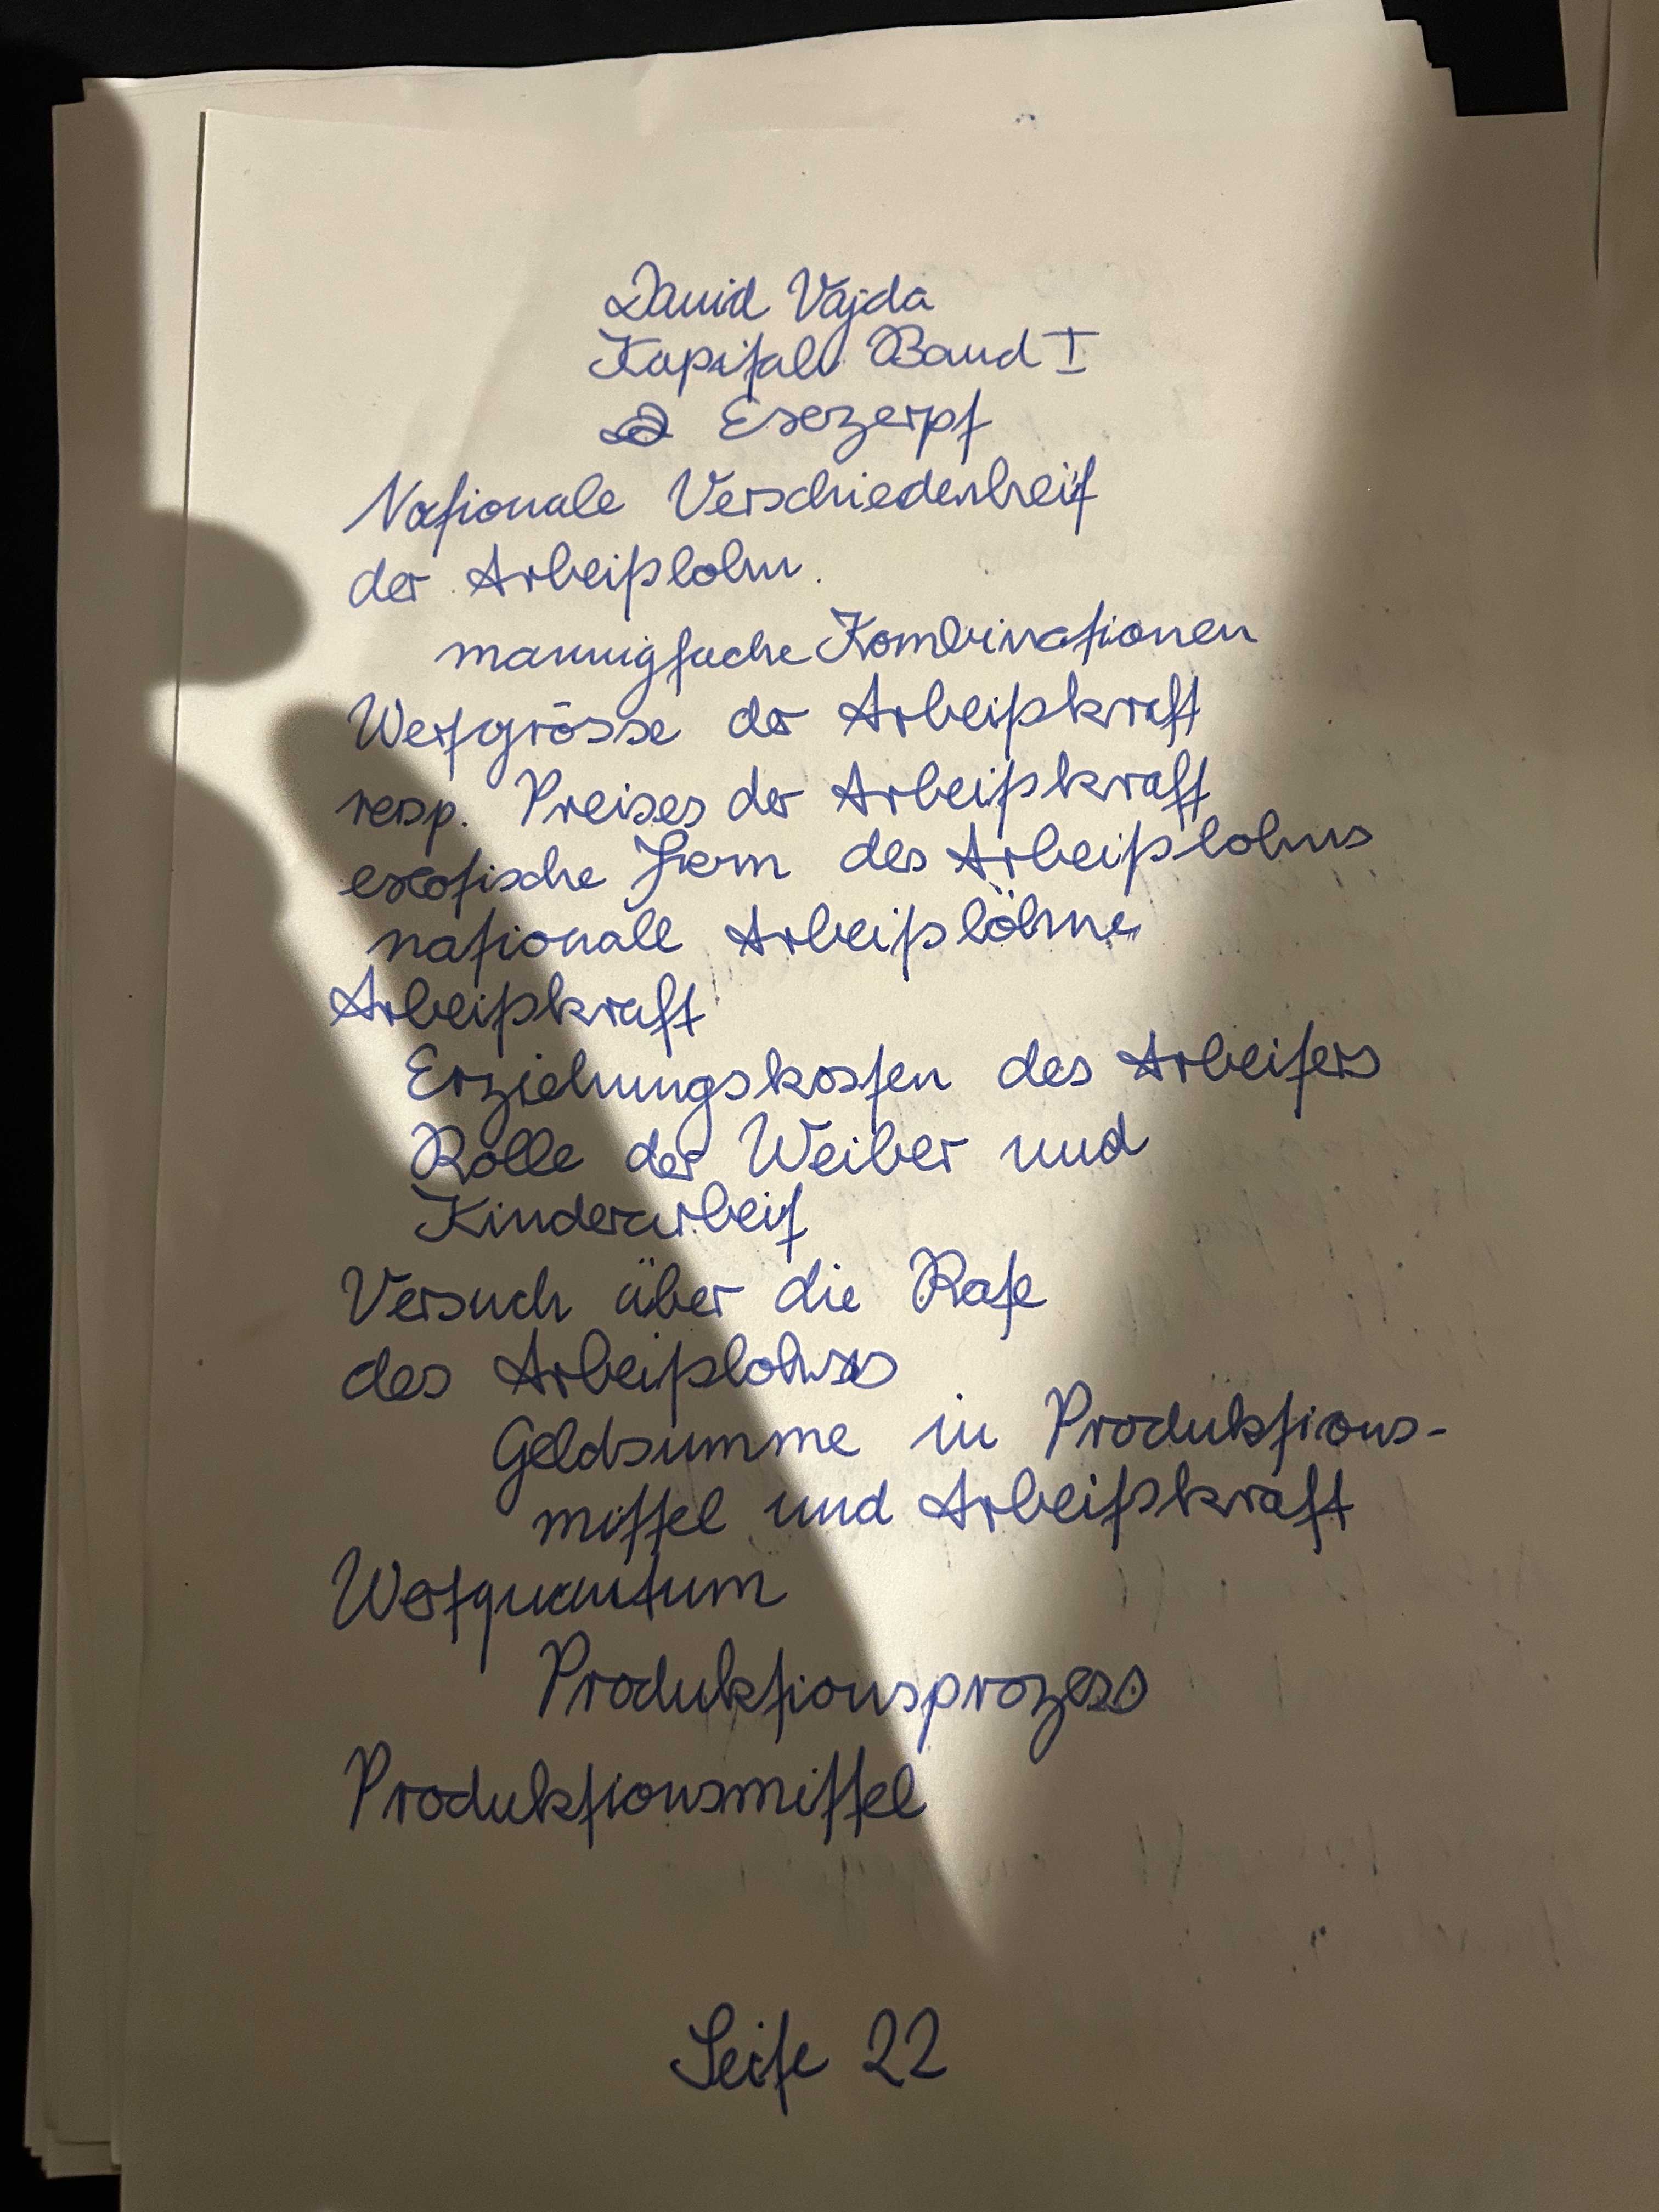 David Vajda
Kapital Band I
Exzerpt
Nationale Verschiedenheit
der Arbeitslohn.
mannigfache Kombinationen
Wertgrösse der Arbeitskraft
resp. Preises der Arbeitskraft
exotische Form des Arbeitslohns
nationale Arbeitslöhne
Arbeitskraft
Erziehungskosten des Arbeiters
Rolle der Weiber und
Kinderarbeit
Versuch über die Rate
des Arbeitslohns
Geldsumme in Produktions-
mittel und Arbeitskraft
Wertquantum
Produktionsprozess
Produktionsmittel
Seite 22